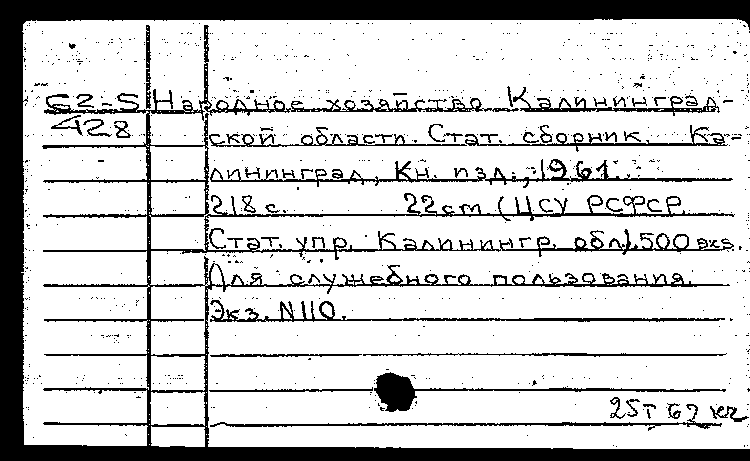 62-5 Народное хозяйство Калининград-
428 ской области. Стат. сборник. Ка=
лининград, Кн. изд., 1961.
218 с. 22 cm. (ЦСУ РСФСР.
Стат. упр. Калинингр. обл). 500 экз.
Для служебного пользования.
Экз. N110.
25т 62